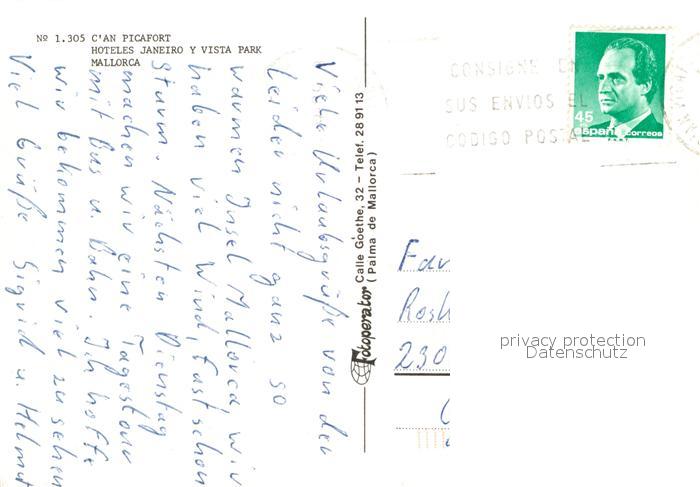 Nº 1.305 C'AN PICAFORT
HOTELES JANEIRO Y VISTA PARK
MALLORCA
Viele Urlaubsgrüße von der
leider nicht ganz so
warmen Insel Mallorca, wir
haben viel Wind, fast schon
Sturm. Nächsten Dienstag
machen wir eine Tagestour
mit Bus u. Bahn. Ich hoffe
wir bekommen viel zu sehen
Viel Grüße Sigrid u. Helmut
Fotoperator Calle Goethe, 32 - Telef. 28 91 13
(Palma de Mallorca)
CONSIGNE EN
SUS ENVIOS EL
CODIGO POSTAL
45
españa correos
Fam
Rosk
230
privacy protection
Datenschutz